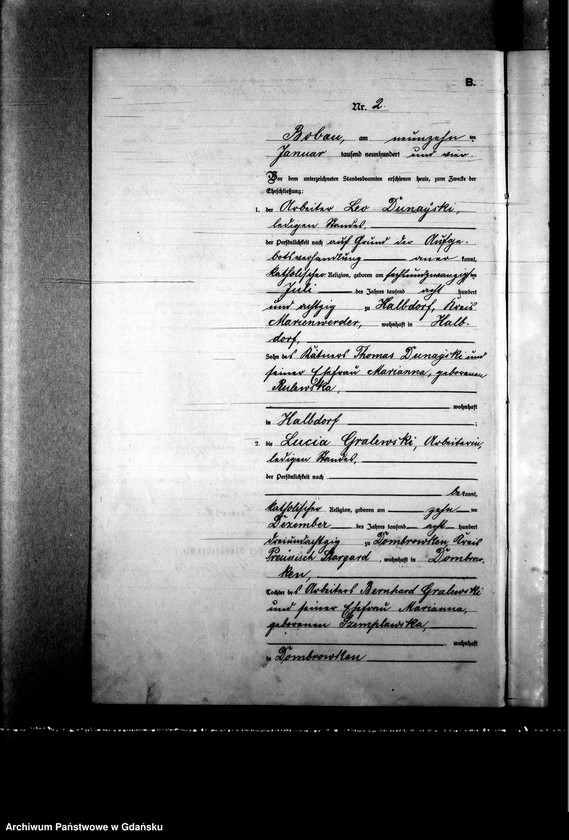 B.
Nr. 2.
Bobau, am neunzehn ten
Januar tausend neunhundert und vier.
Vor dem unterzeichneten Standesbeamten erschienen heute, zum Zwecke der
Eheschließung:
1. der Arbeiter Leo Dunayski,
ledigen Standes,
der Persönlichkeit nach auf Grund der Aufge-
botsverhandlung aner kannt,
katholischer Religion, geboren am sechsundzwanzigsten
Juli des Jahres tausend acht hundert
und achtzig zu Halbdorf, Kreis
Marienwerder, wohnhaft in Halb-
dorf,
Sohn des Kätners Thomas Dunayski und
seiner Ehefrau Marianna, geborenen
Rulewska,
wohnhaft
in Halbdorf ;
2. die Lucia Gralewski, Arbeiterin,
ledigen Standes,
der Persönlichkeit nach
bekannt,
katholischer Religion, geboren am zehn ten
Dezember des Jahres tausend acht hundert
dreiundachtzig zu Dombrowken, Kreis
Preußisch Stargard, wohnhaft in Dombrow-
ken,
Tochter des Arbeiters Bernhard Gralewski
und seiner Ehefrau Marianna,
geborenen Szemplawska,
wohnhaft
in Dombrowken
Archiwum Państwowe w Gdańsku